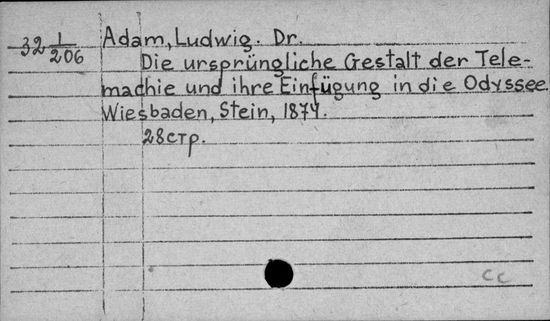 32 1/206
Adam, Ludwig. Dr.
Die ursprüngliche Gestalt der Tele-
machie und ihre Einfügung in die Odyssee.
Wiesbaden, Stein, 1874.
28 стр.
CC